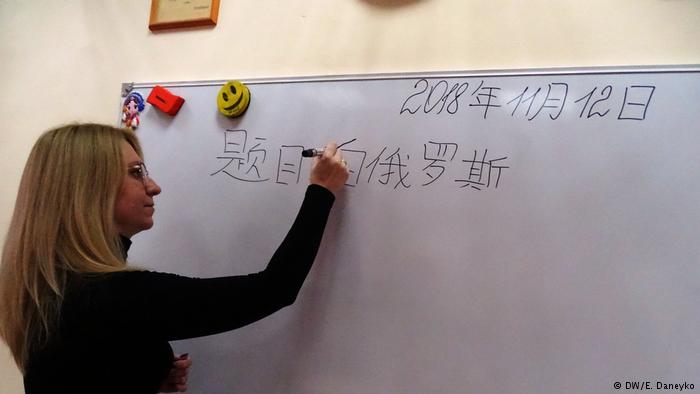 2018年11月12日
题目 白俄罗斯
© DW/E. Daneyko